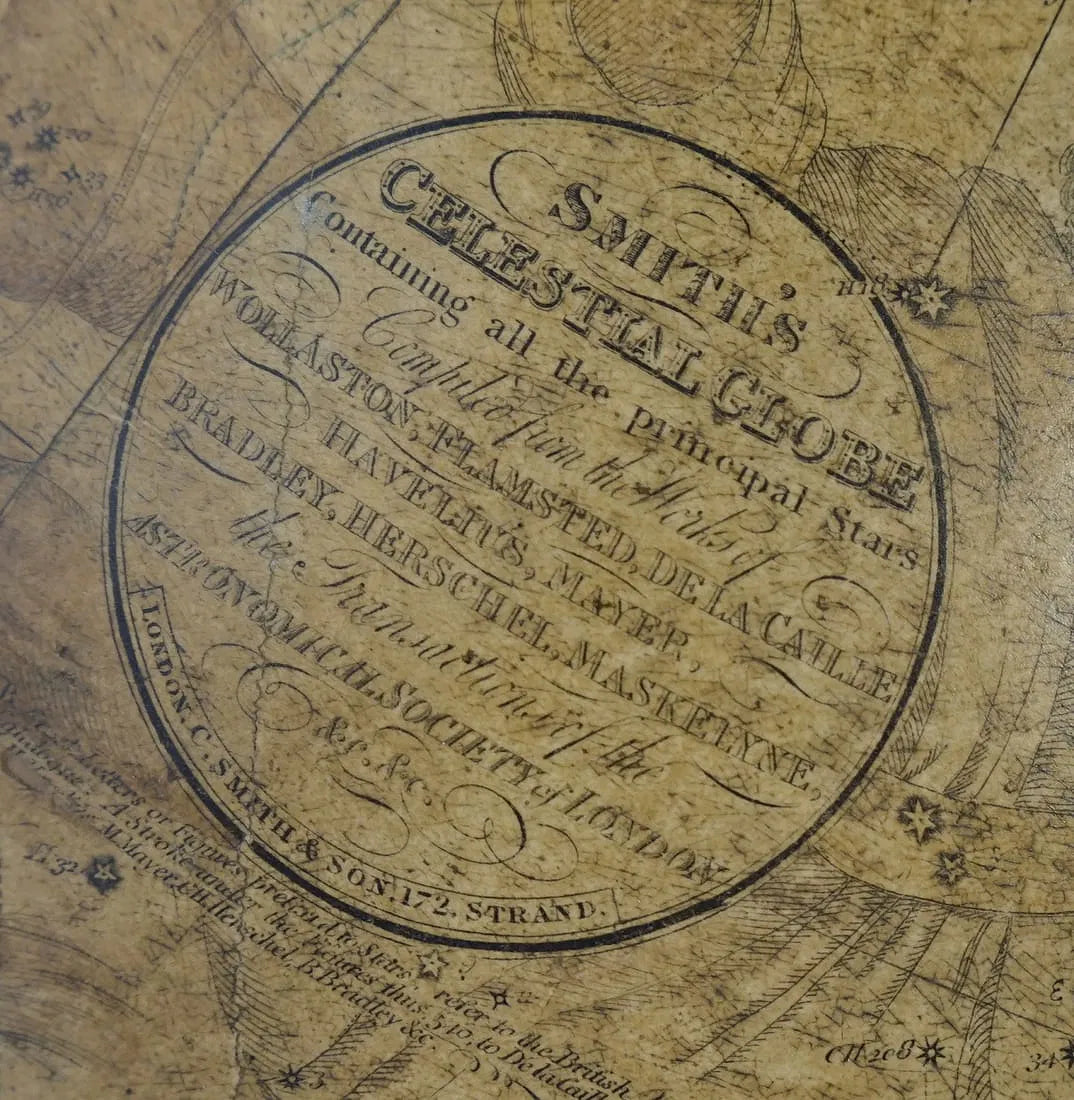 SMITH'S
CELESTIAL GLOBE
Containing all the principal Stars
Compiled from the Works of
WOLLASTON, FLAMSTED, DE LA CAILLE
HAVELIUS, MAYER,
BRADLEY, HERSCHEL, MASKELYNE,
the Transactions of the
ASTRONOMICAL SOCIETY of LONDON
&c. &c.
LONDON. C. SMITH & SON. 172. STRAND.
Letters or Figures prefixed to Stars refer to the British
A Stroke under the Figures thus 510 to De la Caill
M. Mayer, H. Herschel, B. Bradley &c.
H 32
H 18
CH 208
34
3